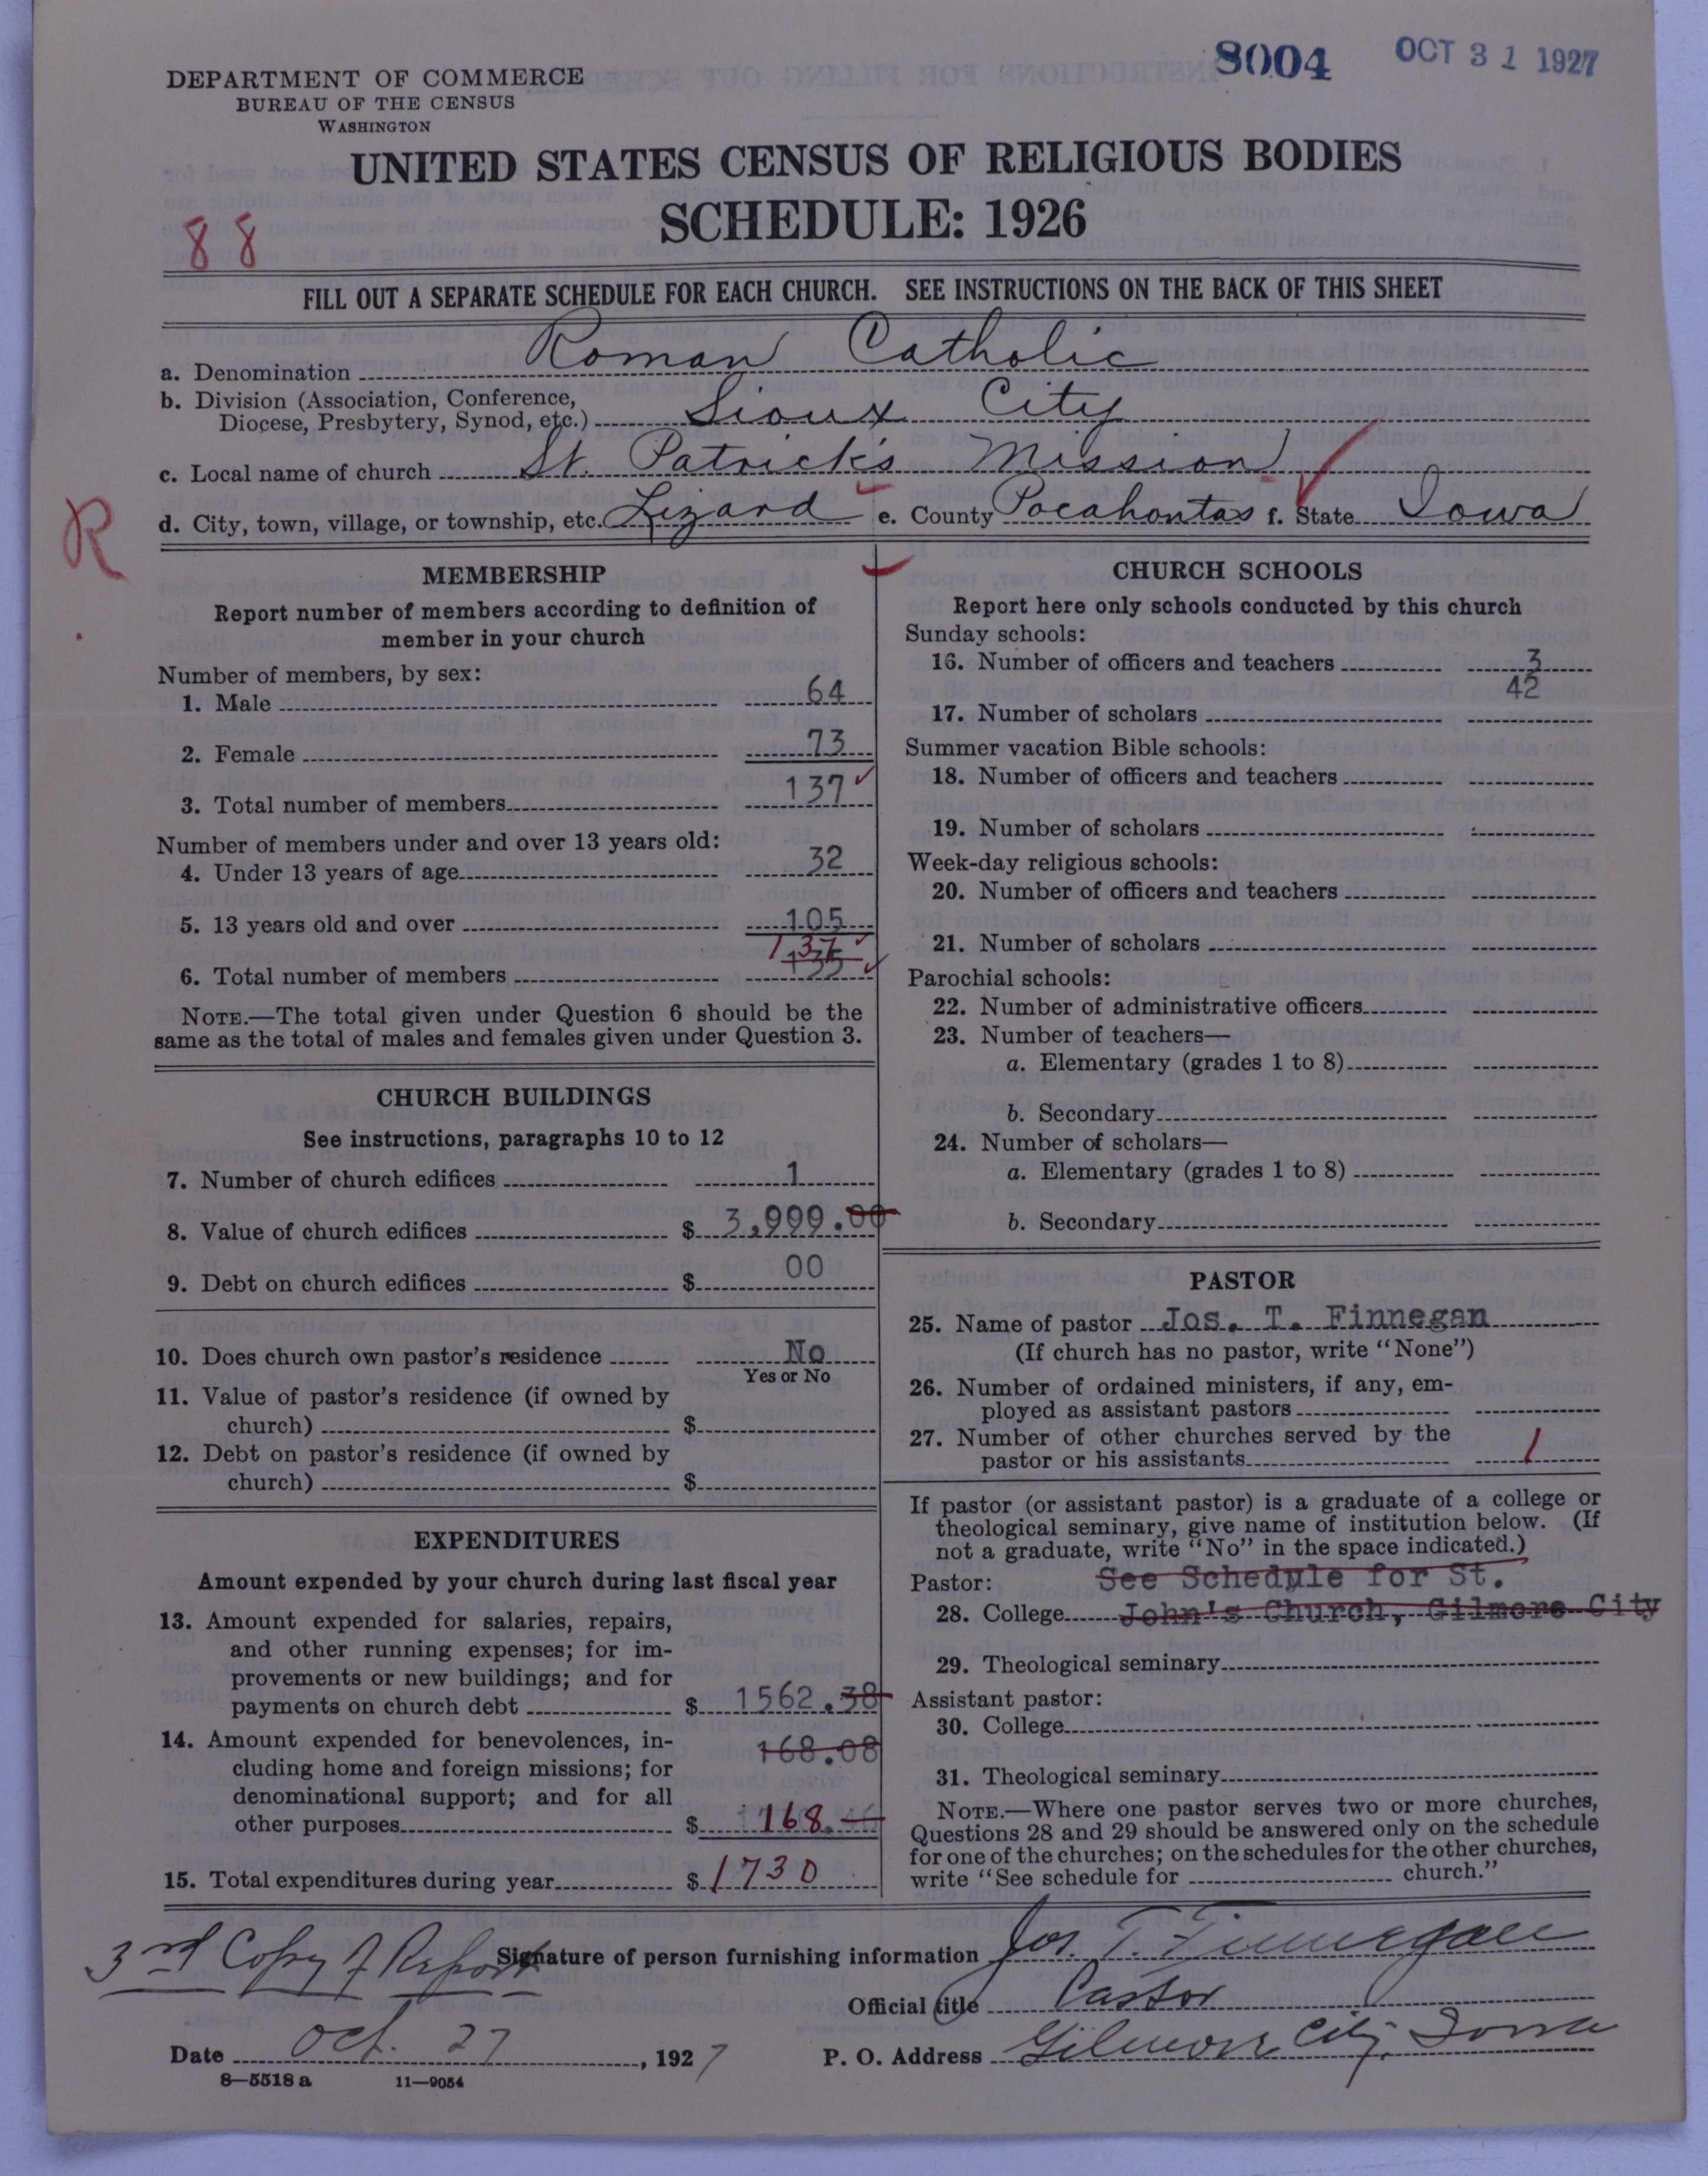 8004 OCT 31 1927
DEPARTMENT OF COMMERCE
BUREAU OF THE CENSUS
WASHINGTON
UNITED STATES CENSUS OF RELIGIOUS BODIES
SCHEDULE: 1926
88
FILL OUT A SEPARATE SCHEDULE FOR EACH CHURCH. SEE INSTRUCTIONS ON THE BACK OF THIS SHEET
a. Denomination Roman Catholic
b. Division (Association, Conference,
Diocese, Presbytery, Synod, etc.) Sioux City
c. Local name of church St. Patrick's Mission
R
d. City, town, village, or township, etc. Lizard e. County Pocahontas f. State Iowa
MEMBERSHIP
Report number of members according to definition of
member in your church
Number of members, by sex:
1. Male 64
2. Female 73
3. Total number of members 137
Number of members under and over 13 years old:
4. Under 13 years of age 32
5. 13 years old and over 105
137
6. Total number of members 135
NOTE.—The total given under Question 6 should be the
same as the total of males and females given under Question 3.
CHURCH BUILDINGS
See instructions, paragraphs 10 to 12
7. Number of church edifices 1
8. Value of church edifices $ 3,999.00
9. Debt on church edifices $ 00
10. Does church own pastor's residence No
Yes or No
11. Value of pastor's residence (if owned by
church) $
12. Debt on pastor's residence (if owned by
church) $
EXPENDITURES
Amount expended by your church during last fiscal year
13. Amount expended for salaries, repairs,
and other running expenses; for im-
provements or new buildings; and for
payments on church debt $ 1562.38
14. Amount expended for benevolences, in- 168.08
cluding home and foreign missions; for
denominational support; and for all
other purposes $ 168.
15. Total expenditures during year $ 1730
CHURCH SCHOOLS
Report here only schools conducted by this church
Sunday schools:
16. Number of officers and teachers 3
42
17. Number of scholars
Summer vacation Bible schools:
18. Number of officers and teachers
19. Number of scholars
Week-day religious schools:
20. Number of officers and teachers
21. Number of scholars
Parochial schools:
22. Number of administrative officers
23. Number of teachers—
a. Elementary (grades 1 to 8)
b. Secondary
24. Number of scholars—
a. Elementary (grades 1 to 8)
b. Secondary
PASTOR
25. Name of pastor Jos. T. Finnegan
(If church has no pastor, write "None")
26. Number of ordained ministers, if any, em-
ployed as assistant pastors
27. Number of other churches served by the
pastor or his assistants 1
If pastor (or assistant pastor) is a graduate of a college or
theological seminary, give name of institution below. (If
not a graduate, write "No" in the space indicated.)
Pastor: See Schedule for St.
28. College John's Church, Gilmore City
29. Theological seminary
Assistant pastor:
30. College
31. Theological seminary
NOTE.—Where one pastor serves two or more churches,
Questions 28 and 29 should be answered only on the schedule
for one of the churches; on the schedules for the other churches,
write "See schedule for church."
3rd Copy of Report Signature of person furnishing information Jos. T. Finnegan
Official title Pastor
Date Oct. 27, 1927 P. O. Address Gilmore City, Iowa
8—5518 a 11—9054